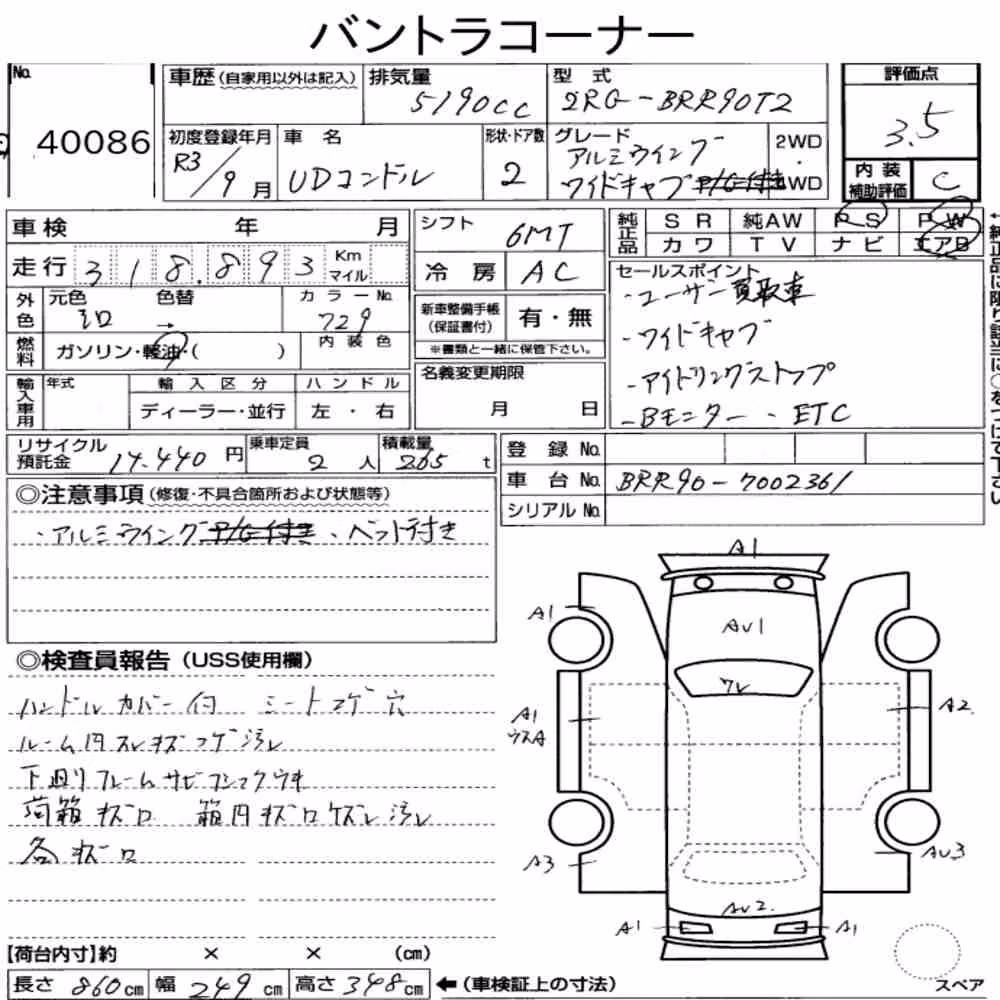 バントラコーナー
No. 40086
車歴(自家用以外は記入)
排気量 5190cc
型式 2RG-BRR90T2
評価点 3.5
初度登録年月 R3/9月
車名 UDコンドル
形状・ドア数 2
グレード アルミウイング
ワイドキャブ
2WD
・
4WD
内装
補助評価 C
車検 年 月
走行 318.893 Km
マイル
シフト 6MT
冷房 AC
純正品 SR 純AW PS PW
カワ TV ナビ エアB
外色 元色 シロ 色替 → カラーNo. 729
燃料 ガソリン・軽油・( ) 内装色
新車整備手帳
(保証書付) 有・無
※書類と一緒に保管下さい。
セールスポイント
・ユーザー買取車
・ワイドキャブ
・アイドリングストップ
・Bモニター ・ETC
輸入車用 年式 輸入区分 ハンドル
ディーラー・並行 左・右
名義変更期限
月 日
リサイクル
預託金 14.440円
乗車定員 2人
積載量 265t
登録No.
車台No. BRR90-7002361
シリアルNo.
◎注意事項(修復・不具合箇所および状態等)
・アルミウイング ・ベット付き
◎検査員報告(USS使用欄)
ハンドルカバー付 シートコゲ穴
ルーム内スレキズコゲ汚レ
下回りフレームサビ
荷箱キズロ 箱内キズロケズレ汚レ
各キズロ
A1
A1
AU1
ワレ
A1
ウスA
A2
A3
AU3
AU2
A1
A1
スペア
【荷台内寸】約 × × (cm)
長さ 860cm 幅 249cm 高さ 348cm ←(車検証上の寸法)